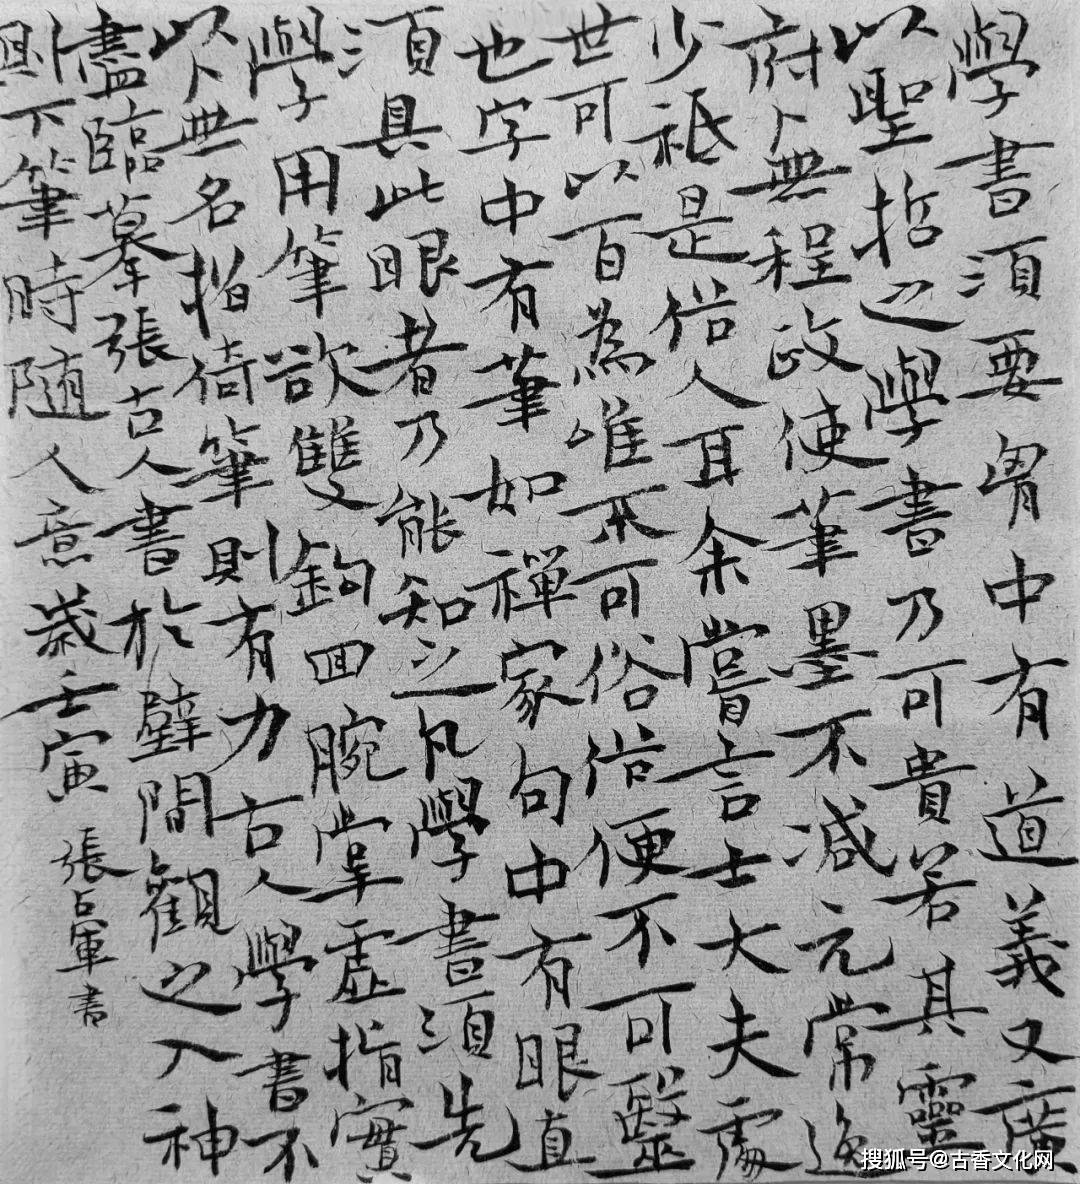 學書須要胷中有道義又廣
以聖哲之學書乃可貴若其靈
府無程政使筆墨不減元常逸
少祗是俗人耳余嘗言士大夫處
世可以百為唯不可俗俗便不可醫
也字中有筆如禪家句中有眼直
須具此眼者乃能知之凡學書須先
學用筆欲雙鉤回腕掌虛指實
以無名指倚筆則有力古人學書不
盡臨摹張古人書於壁間觀之入神
則下筆時隨人意歲壬寅
張占軍書
搜狐号@古香文化网